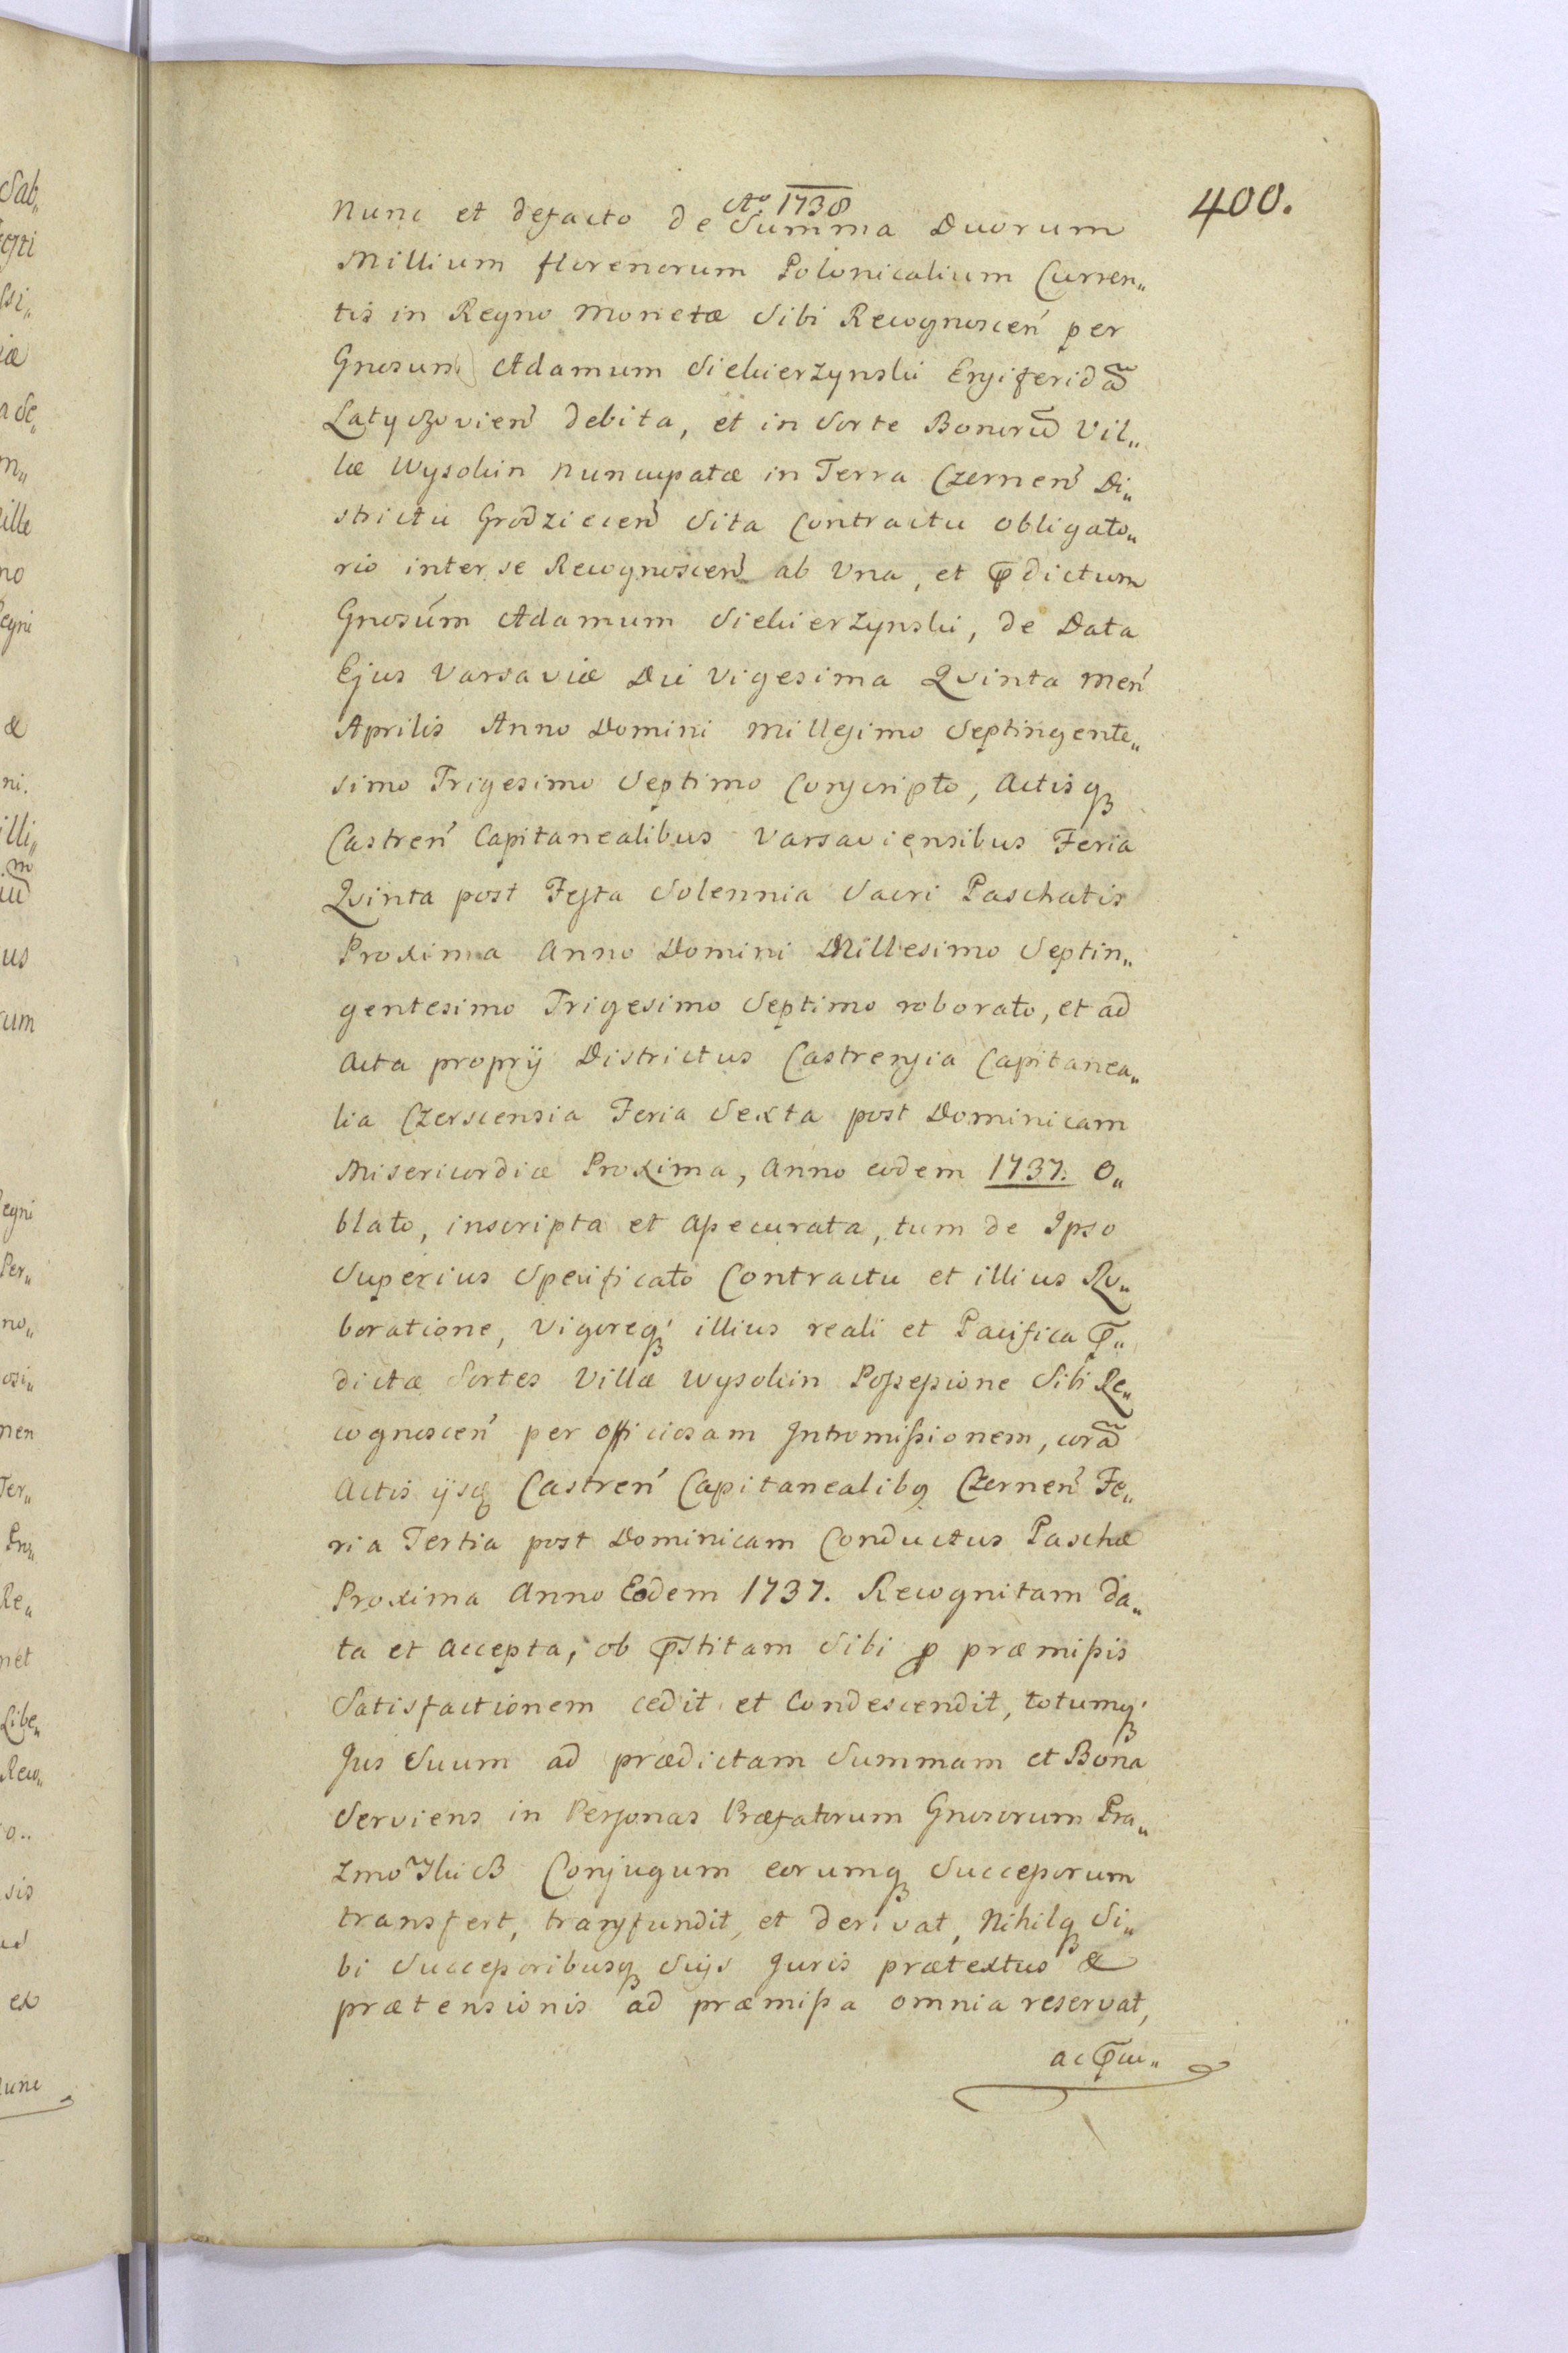 Aо 1738
400.
nunc et defacto de Summa Duorum
Millium florenorum Polonicalium Curren„
tis in Regno Monetæ Sibi Recognoscen̄ per
Gnosum Adamum Siekierzynski Ensiferidã
Latyczovien̄ debita, et in Sorte Bonorũ Vil„
læ Wysokin nuncupatæ in Terra Czernen̄ Di„
strictu Grodziecen̄ Sita Contractu obligato„
rio inter se Recognoscen̄ ab Vna, et p̄dictum
Gnosúm Adamum Siekierzynski, de Data
Ejus Varsaviæ Die Vigesima Qvinta Men̄
Aprilis Anno Domini Millesimo Septingente„
simo Trigesimo Septimo Conscripto, Actisq
Castren̄ Capitanealibus Varsaviensibus Feria
Qvinta post Festa Solennia Sacri Paschatis
Proxima Anno Domini Millesimo Septin„
gentesimo Trigesimo Septimo roborato, et ad
Acta proprij Districtus Castrensia Capitanea„
lia Czerscensia Feria Sexta post Dominicam
Misericordiæ Proxima, Anno eodem 1737. O„
blato, inscripta et assecurata, tum de Ipso
Superius Specificato Contractu et illius Ro„
boratione, Vigoreq illius reali et Pacifica p̄„
dictæ Sortes Villæ Wysokin Possessione Sibi Re„
cognoscen̄ per Officiosam Intromissionem, corã
Actis ijsq Castren̄ Capitanealibq Czernen̄ Fe„
ria Tertia post Dominicam Conductus Paschæ
Proxima Anno Eodem 1737. Recognitam da„
ta et accepta, ob p̄stitam Sibi p præmissis
Satisfactionem cedit et Condescendit, totumq
Jus Suum ad prædictam Summam et Bona
Serviens in Personas Præfatorum Gnosorum Pra„
Conjugum eorumq Successorum
transfert, transfundit, et derivat, Nihilq Si„
bi Successoribusq Suis Juris prætextus &
prætensionis ad præmissa omnia reservat,
ac p̄cu„